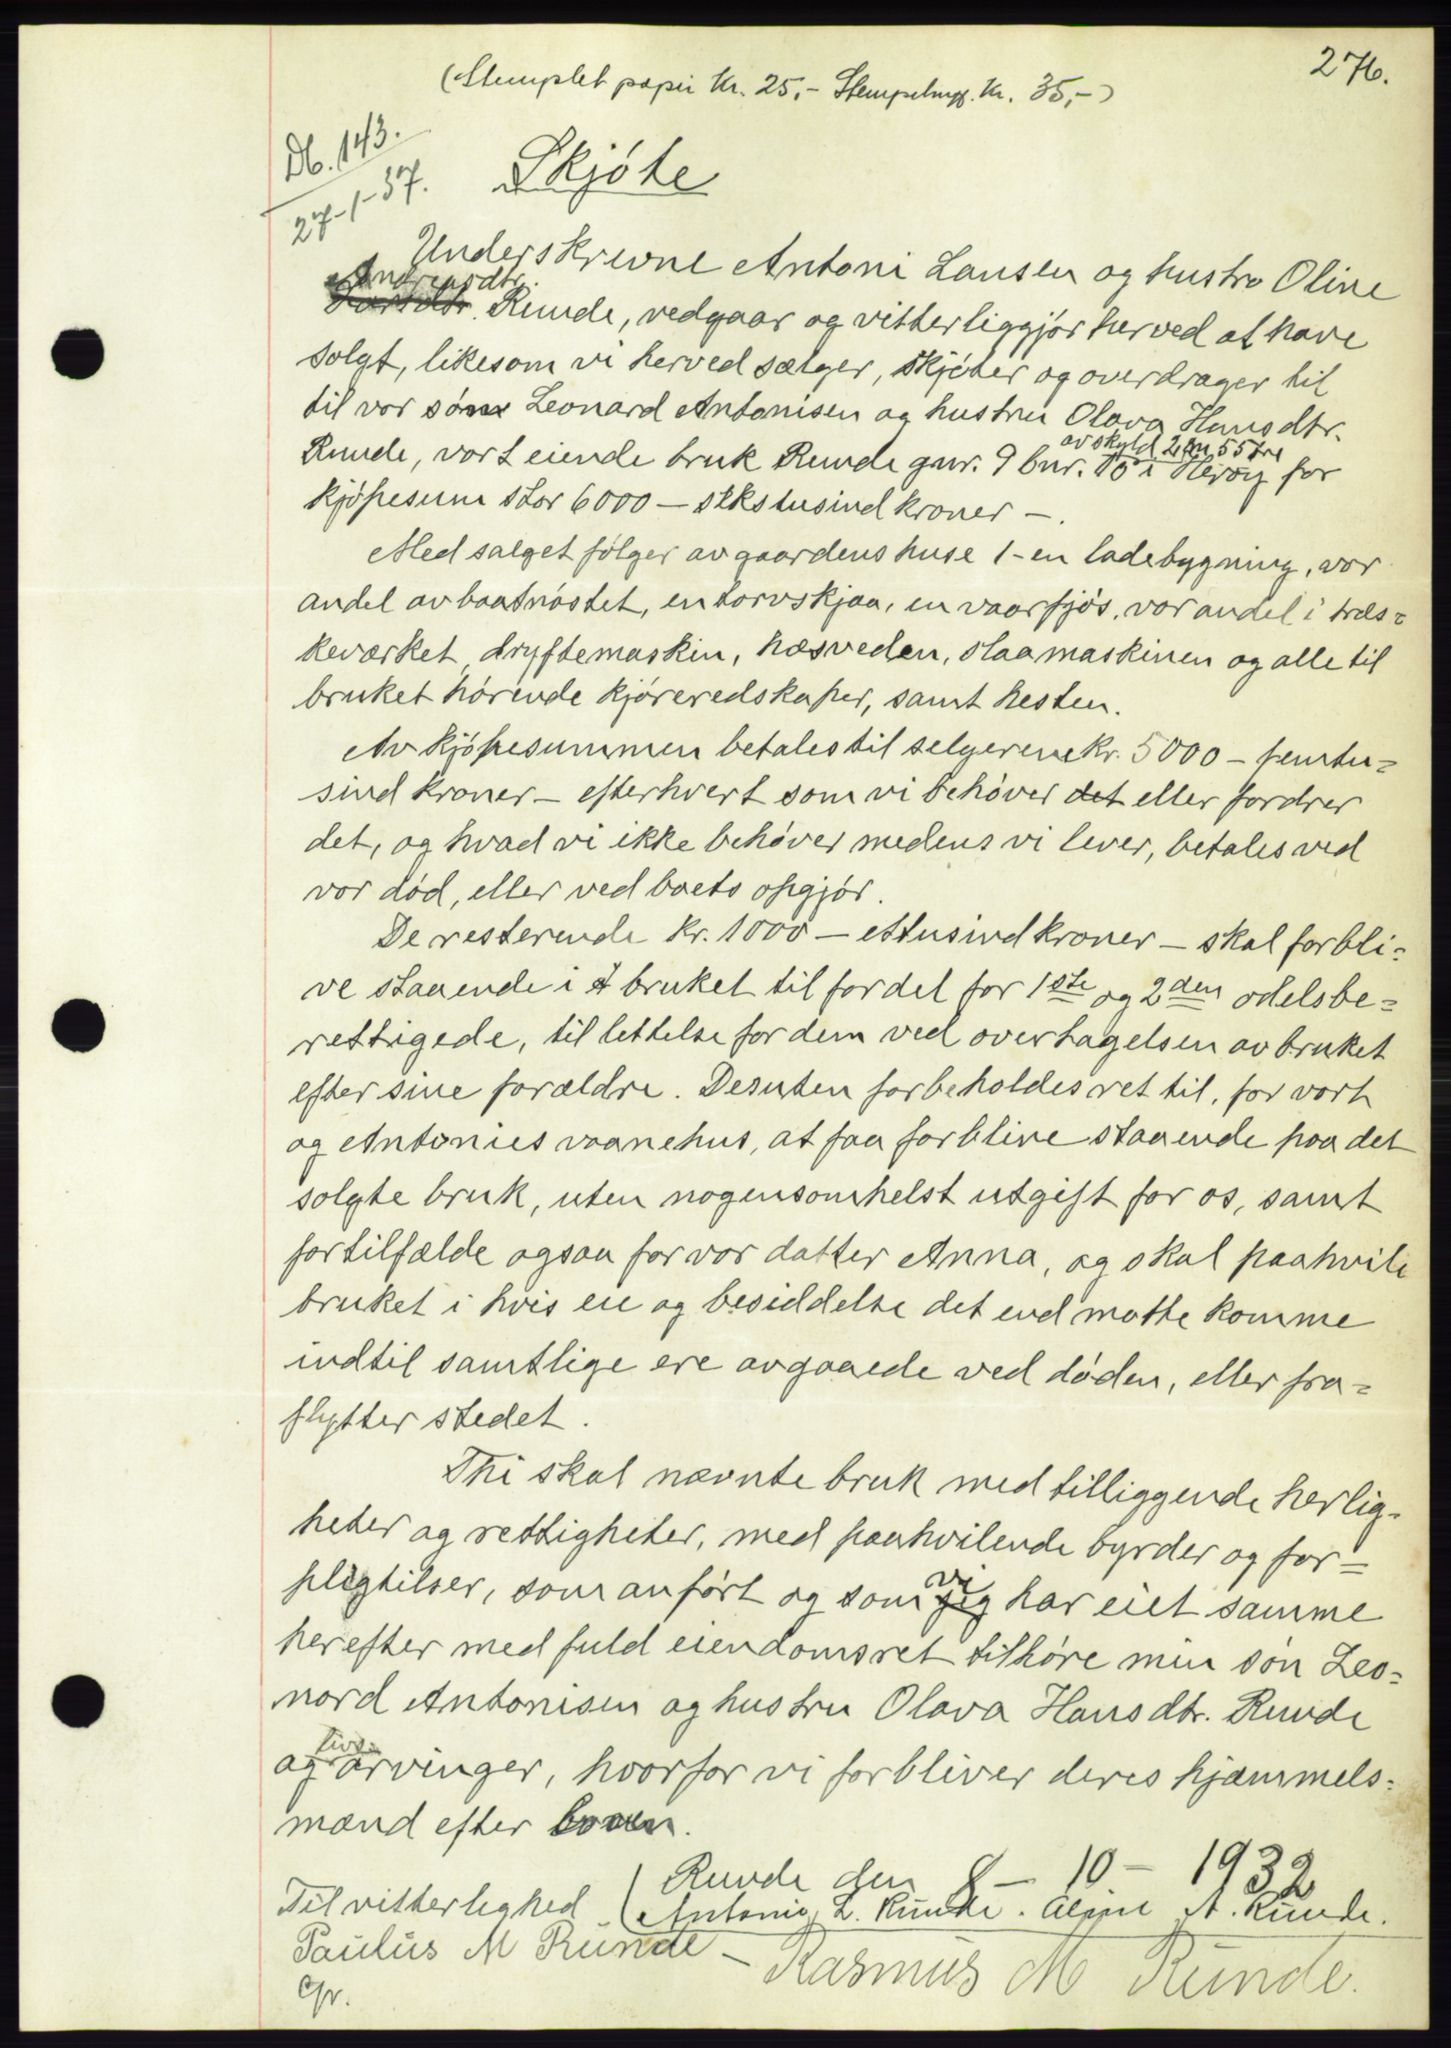 276.
(Stemplet papir kr. 25,- Stempelavg. kr. 35,-)
Db. 143.
27-1-37.
Skjóte
Underskrevne Antoni Larsen og hustro Oline
Andreasdtr.
Runde, vedgaar og vitterliggjór herved at have
solgt, likesom vi herved sælger, skjóter og overdrager til
til vor són Leonard Antonisen og hustru Olava Hansdtr.
av skyld 2 m. 55 øre
Runde, vort eiende bruk Runde gnr. 9 bnr. 10 i Heröy for
kjópesum stor 6000 – sekstusind kroner –.
Med salget fólger av gaardens huse 1-en ladebygning, vor
andel av baatnóstet, en torvskjaa, en vaarfjós, vor andel i træs=
keværket, dryftemaskin, hæsveden, slaamaskinen og alle til
bruket hórende kjóreredskaper, samt hesten.
Av kjópesummen betales til selgerene kr. 5000 – femtu=
sind kroner – efterhvert som vi behóver det eller fordrer
det, og hvad vi ikke behóver medens vi lever, betales ved
vor dód, eller ved boets opgjór.
De resterende kr. 1000 – ettusind kroner – skal forbli=
ve staaende i bruket til fordel for 1ste og 2den odelsbe=
rettigede, til lettelse for dem ved overtagelsen av bruket
efter sine forældre. Desuten forbeholdes ret til, for vort
og Antonies vaanehus, at faa forblive staaende paa det
solgte bruk, uten nogensomhelst utgift for os, samt
fortilfælde ogsaa for vor datter Anna, og skal paahvile
bruket i hvis eie og besiddelse det end maatte komme
indtil samtlige ere avgaaede ved dóden, eller fra=
flytter stedet.
Thi skal nævnte bruk med tilliggende herlig=
heter og rettigheter, med paahvilende byrder og for=
vi
pligtilser, som anfórt og som jeg har eiet samme
herefter med fuld eiendomsret tilhóre min són Leo=
nard Antonisen og hustru Olava Hansdtr. Runde
livs-
og arvinger, hvorfor vi forbliver deres hjæmmels=
mænd efter loven.
Runde den 8 – 10 – 1932
Til vitterlighed
Antonie L. Runde. Oline A. Runde.
Paulus M Runde – Rasmus M Runde.